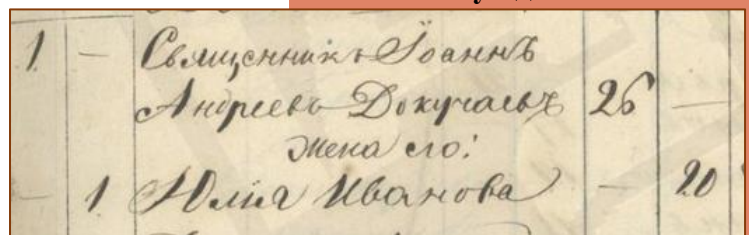 1 — Священникъ Іоаннъ
Андреевъ Докучаевъ 26 —
жена его:
— 1 Юлия Иванова — 20